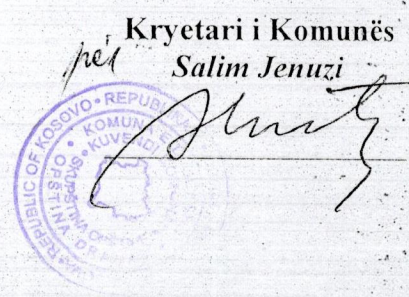 Kryetari i Komunës
për
Salim Jenuzi
REPUBLIC OF KOSOVO • REPUBLIKA
KOMUNA E
KUVENDI
SKUPŠTINA
OPŠTINA